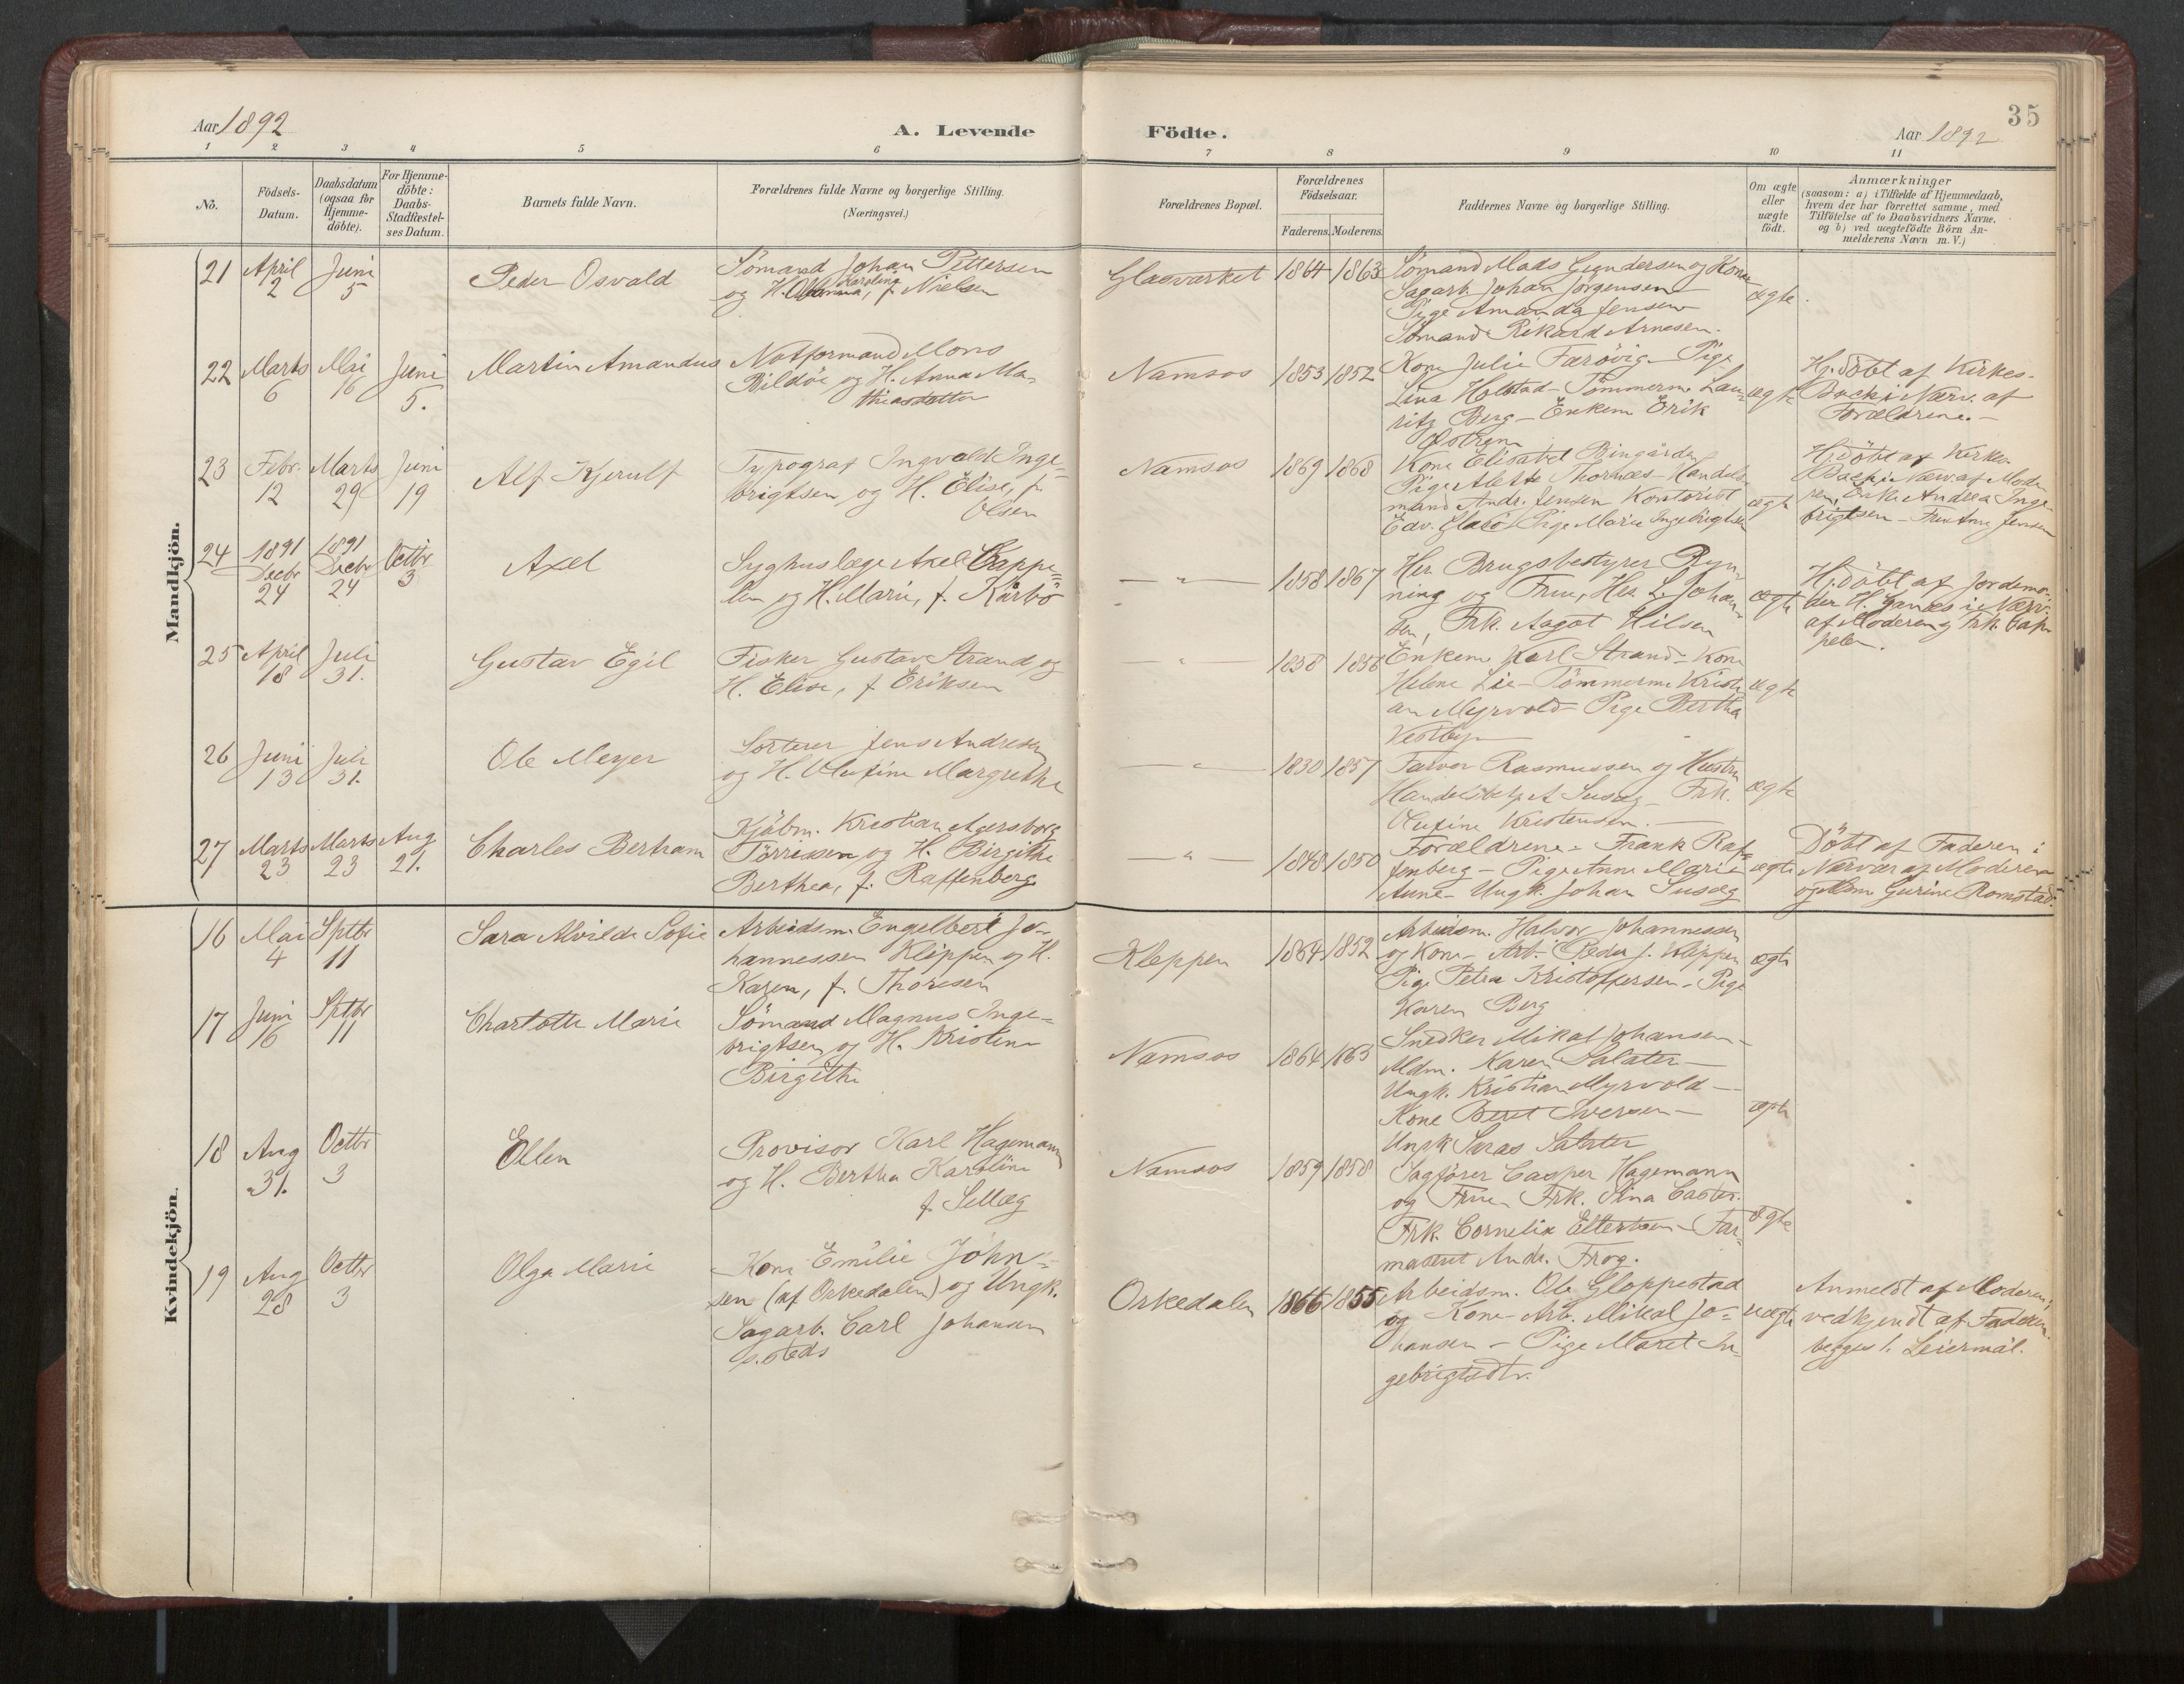 Aar 1892
A. Levende
Födte.
Aar 1892
35
1 2 3 4 5 6 7 8 9 10 11
No.
Födsels-
Datum.
Daabsdatum
(ogsaa for
Hjemme-
döbte).
For Hjemme-
döbte:
Daabs-
Stadfæstel-
ses Datum.
Barnets fulde Navn.
Forældrenes fulde Navne og borgerlige Stilling.
(Næringsvei.)
Forældrenes Bopæl.
Forældrenes
Födselsaar.
Faderens. Moderens.
Faddernes Navne og borgerlige Stilling.
Om ægte
eller
uægte
födt.
Anmærkninger
(saasom: a) i Tilfælde af Hjemmedaab,
hvem der har forrettet samme, med
Tilföielse af to Daabsvidners Navne,
og b) ved uægtefödte Börn An-
melderens Navn m. V.)
Mandkjön.
21
April
2
Juni
5
Peder Osvald
Sömand Johan Pettersen
Karolina
og H. f. Nielsen
Glasværket
1864
1863
Sömand Mads Gundersen og Kone
Sagarb. Johan Jörgensen
Pige Amanda Jensen
Sömand Rikard Arnesen.
ægte.
22
Marts
6
Mai
16
Juni
5.
Martin Amandus
Notformand Mons
Bildöe og H. Anna Ma-
thiasdatter
Namsos
1853
1852
Kone Julie Farövig - Pige
Lina Holstad - Tömmerm. Lau-
ritz Berg - Enkem Erik
Östrem
ægte
Hj. döbt af Kirkes.
Buck i Nærv. af
Forældrene. -
23
Febr.
12
Marts
29
Juni
19
Alf Kjerulf
Typograf Ingvald Inge-
brigtsen og H. Elise, f.
Olsen
Namsos
1869
1868
Kone Elisabet Bingården
Pige Alette Thornæs - Handels-
mand Andr. Jensen Kontorist
Edv. Glasö Pige Marie Ingebrigtsen
ægte
Hj. Döbt af Kirkes.
Buck i Nærv. af Mode-
ren, Enke Andrea Inge-
brigtsen - Fru Anne Jensen
24
1891
Decbr
24
1891
Decbr
24
Octbr
3
Axel
Syghuslæge Axel Cappe-
len og H. Marie, f. Kårbö
— " —
1858
1867
Her Brugsbestyrer Ryn-
ning og Frue, Her L. Johan-
sen, Frk. Aagot Hilsen
ægte
Hj. Döbt af Jordemo-
der H. Ganæs i Nærv.
af Moderen og Frk. Cap-
pelen.
25
April
18
Juli
31.
Gustav Egil
Fisker Gustav Strand og
H. Elise, f. Eriksen
— " —
1858
1856
Enkem. Karl Strand - Kone
Helene Lie - Tömmerm. Kristi-
an Myrvold - Pige Bertha
Vestbye
ægte
26
Juni
13
Juli
31.
Ole Meyer
Sorterer Jens Andresen
og H. Olufine Margrethe
— " —
1830
1857
Farver Rasmussen og Hustru
Handelsbetj. A Susæg - Frk.
Olufine Kristensen. -
ægte
27
Marts
23
Marts
23
Aug
21.
Charles Bertram
Kjöbm. Kristian Agersborg
Törrissen og H. Birgithe
Berthea, f. Raffenberg
— " —
1848
1850
Forældrene - Frank Raf-
fenberg - Pige Anne Marie
Aune - Ungk. Johan Susæg
ægte
Döbt af Faderen i
Nærvær af Moderen
og Kone Gurine Romstad.
Kvindekjön.
16
Mai
4
Sptbr
11
Sara Alvilde Sofie
Arbeidsm. Engelbert Jo-
hannessen Kleppen og H.
Karen, f. Thoresen
Kleppen
1864
1852
Arbeidsm. Halvor Johannessen
og Kone - Arb. Peder J. Kleppen
Pige Petra Kristoffersen - Pige
Karen Berg
ægte
17
Juni
16
Sptbr
11
Charlotte Marie
Sömand Magnus Inge-
brigtsen og H. Kristine
Birgithe
Namsos
1864
1863
Snedker Mikal Johansen -
Mdm. Karen Salater -
Ungk. Kristian Myrvold -
Kone Beret Iversen -
Ungk Saras Salater
ægte
18
Aug
31.
Octbr
3
Ellen
Provisor Karl Hagemann
og H. Bertha Karoline
f. Sellæg
Namsos
1859
1858
Sagförer Casper Hagemann
og Frue Frk. Stina Caster.
Frk. Cornelia Ellertsen - Far-
maseut Andr. Frog.
ægte
19
Aug
28
Octbr
3
Olga Marie
Kone Emilie John-
sen (af Orkedalen) og Ungk.
Sagarb. Carl Johansen
s. steds
Orkedalen
1866
1855
Arbeidsm. Ole Gloppestad
og Kone - Arb. Mikal Jo-
hansen - Pige Maret In-
gebrigtsdtr.
uægte
Anmeldt af Moderen;
vedkjendt af Faderen.
begges 1. Leiermål.